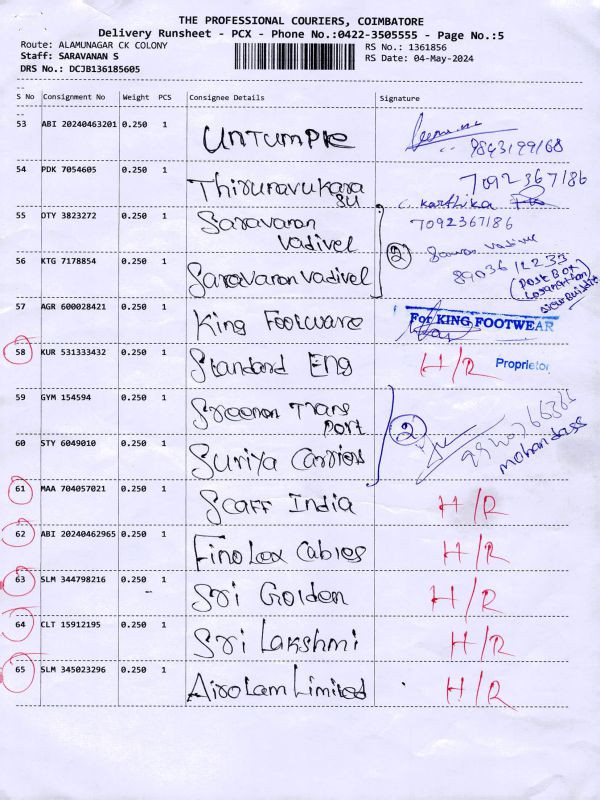 THE PROFESSIONAL COURIERS, COIMBATORE
Delivery Runsheet - PCX - Phone No.:0422-3505555 - Page No.:5
Route: ALAMUNAGAR CK COLONY
RS No.: 1361856
Staff: SARAVANAN S
RS Date: 04-May-2024
DRS No.: DCJB136185605
S No Consignment No Weight PCS Consignee Details Signature
53 ABI 20240463201 0.250 1 UNTUMPRE
9843199168
54 PDK 7054605 0.250 1 Thirunavukara su
7092367186
C. Karthika
55 OTY 3823272 0.250 1 Saravanan vadivel
7092367186
2
56 KTG 7178854 0.250 1 Saravanan vadivel
(Post Box
57 AGR 600028421 0.250 1 King Footware
For KING FOOTWEAR
Proprietor
58 KUR 531333432 0.250 1 Standard Eng H/R
59 GYM 154594 0.250 1 Sreenon Trans port
2
60 STY 6049010 0.250 1 Suriya Carriers
mohandass
61 MAA 704057021 0.250 1 Scaff India H/R
62 ABI 20240462965 0.250 1 Finolex Cables H/R
63 SLM 344798216 0.250 1 Sri Golden H/R
64 CLT 15912195 0.250 1 Sri Lakshmi H/R
65 SLM 345023296 0.250 1 Airolam Limited H/R